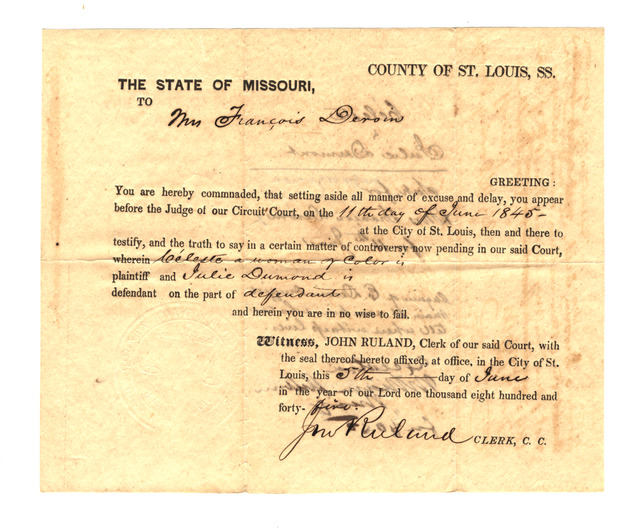 COUNTY OF ST. LOUIS, SS.
THE STATE OF MISSOURI,
TO
Mrs François Deroin
GREETING:
You are hereby commanded, that setting aside all manner of excuse and delay, you appear
before the Judge of our Circuit Court, on the 11th day of June 1845-
at the City of St. Louis, then and there to
testify, and the truth to say in a certain matter of controversy now pending in our said Court,
wherein Celeste a woman of Color is
plaintiff and Julie Dumond is
defendant on the part of defendant
and herein you are in no wise to fail.
Witness, JOHN RULAND, Clerk of our said Court, with
the seal thereof hereto affixed, at office, in the City of St.
Louis, this 5th day of June
in the year of our Lord one thousand eight hundred and
forty- five.
Jno Ruland CLERK, C. C.